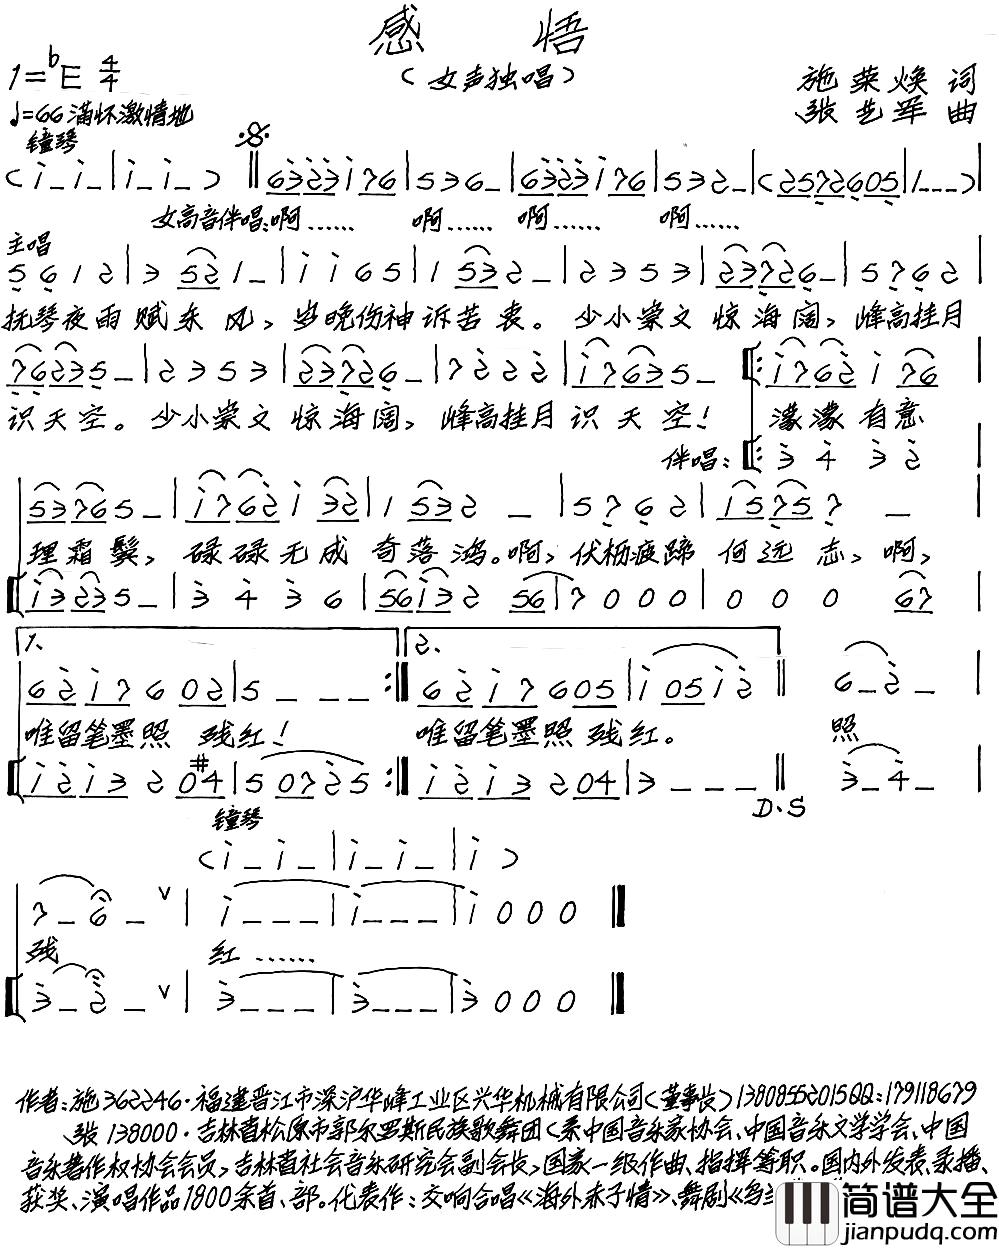 感 悟
(女声独唱)
1=♭E 4/4
施荣焕 词
张艺军 曲
♩=66 满怀激情地
钟琴
(i - i - | i - i - ) ‖ 6323 i 76 | 5 3 6 - | 6323 i 76 | 5 3 2 - | (2572605 | 1 - - - )
女高音伴唱:啊…… 啊…… 啊…… 啊……
主唱
5 6 1 2 | 3 52 1 - | i i 6 5 | 1 53 2 - | 2 3 5 3 | 2372 6 - | 5 7 6 2
抚琴夜雨赋东风, 岁晚伤神诉苦衷。 少小崇文惊海阔, 峰高挂月
76235 - | 2 3 5 3 | 23726 - | 7 2 2 2 | i7635 - ‖: i762 i 76 |
识天空。 少小崇文惊海阔, 峰高挂月识天空! 濛濛有意
伴唱: 3 4 3 2
53765 - | i762 i 32 | 1 53 2 - | 5 7 6 2 | 1575 7 - |
理霜鬓, 碌碌无成奇落鸿。啊, 伏枥疲蹄何远志, 啊,
i3235 - | 3 4 3 6 | 56i3 2 56 | 7 0 0 0 | 0 0 0 67 |
1. 2.
62i7 6 02 | 5 - - - :‖ 62i7 605 | i 05 i 2 ‖ 6 - 2 - |
唯留笔墨照 残红! 唯留笔墨照残红。 照
i2i3 2 0#4 | 5 0725 :‖ i2i3 204 | 3 - - - ‖ 3 - 4 - |
D.S
钟琴
(i - i - | i - i - | i )
7 - 6 - ∨ | i - - - | i - - - | i 0 0 0 ‖
残 红……
3 - 2 - ∨ | 3 - - - | 3 - - - | 3 0 0 0 ‖
作者:施362246·福建晋江市深沪华峰工业区兴华机械有限公司(董事长)13808552015QQ:179118679
张138000·吉林省松原市郭尔罗斯民族歌舞团(系中国音乐家协会、中国音乐文学学会、中国
音乐著作权协会会员,吉林省社会音乐研究会副会长,国家一级作曲、指挥等职。国内外发表、录播、
获奖、演唱作品1800余首、部。代表作:交响合唱《海外赤子情》、舞剧《乌兰
简谱大全
jianpudq.com